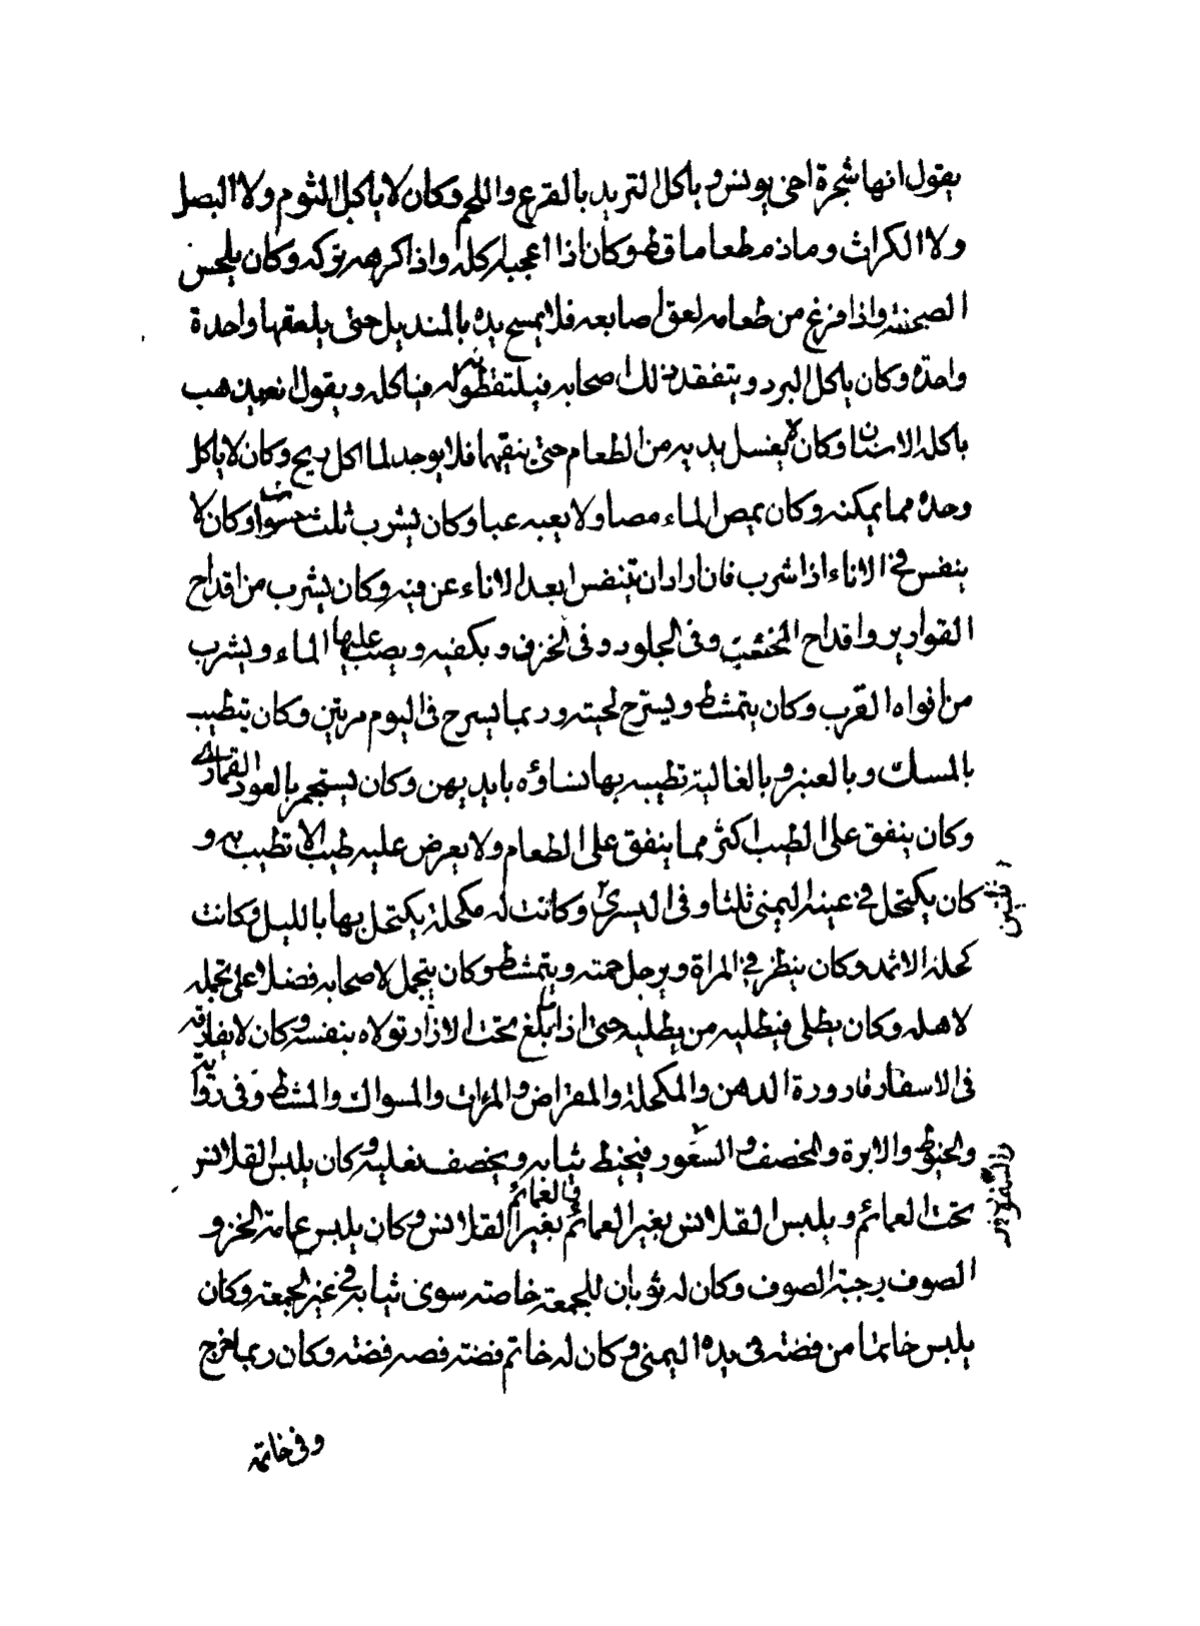 يقول انها شجرة اخي يونس و ياكل الثريد بالقرع واللحم وكان لا ياكل الثوم ولا البصل
ولا الكراث وما ذم طعاما قط وكان اذا اعجبه اكله واذا كرهه تركه وكان يلحس
الصحفة واذا فرغ من طعامه لعق اصابعه فلا يمسح يده بالمنديل حتى يلعقها واحدة
واحدة وكان ياكل البرد ويتفقد ذلك اصحابه فيلتقطونه له فياكله ويقول انه يذهب
باكلة الاسنان وكان يغسل يديه من الطعام حتى ينقيهما فلا يوجد لما اكل ريح وكان لا ياكل
وحده مما يمكنه وكان يمص الماء مصا ولا يعبه عبا وكان يشرب ثلث حسوات وكان لا
يتنفس في الاناء اذا شرب فان اراد ان يتنفس ابعد الاناء عن فيه وكان يشرب من اقداح
القوارير واقداح الخشب وفى الجلود وفى الخزف وبكفيه ويصب عليها الماء ويشرب
من افواه القرب وكان يتمشط ويسرح لحيته وربما يسرح فى اليوم مرتين وكان يتطيب
بالمسك وبالعنبر وبالغالية تطيبه بها نساؤه بايديهن وكان يستجمر بالعود القمارى
وكان ينفق على الطيب اكثر مما ينفق على الطعام ولا يعرض عليه طيب الا تطيب به و
كان يكتحل فى عينه اليمنى ثلثا وفى اليسرى وكانت له مكحلة يكتحل بها بالليل وكانت
اثنين
كحله الاثمد وكان ينظر فى المراة ويرجل جمته ويتمشط وكان يتجمل لاصحابه فضلا على تجمله
لاهله وكان يطلى فيطليه من يطليه حتى اذا بلغ تحت الازار تولاه بنفسه وكان لا يفارقه
فى الاسفار قارورة الدهن والمكحلة والمقراض والمرات والمسواك والمشط وفى رواية
والخيوط والابرة والمخصف و السعور فيخيط ثيابه ويخصف نعليه وكان يلبس القلانس
تحت العمائم ويلبس القلانس بغير العمائم والعمائم بغير القلانس وكان يلبس عمامة الخز و
الصوف وجبة الصوف وكان له ثوبان للجمعة خاصة سوى ثيابه في غير الجمعة وكان
يلبس خاتما من فضة فى يده اليمنى وكان له خاتم فضة فصه فضة وكان ربما خرج
وفى خاتمه